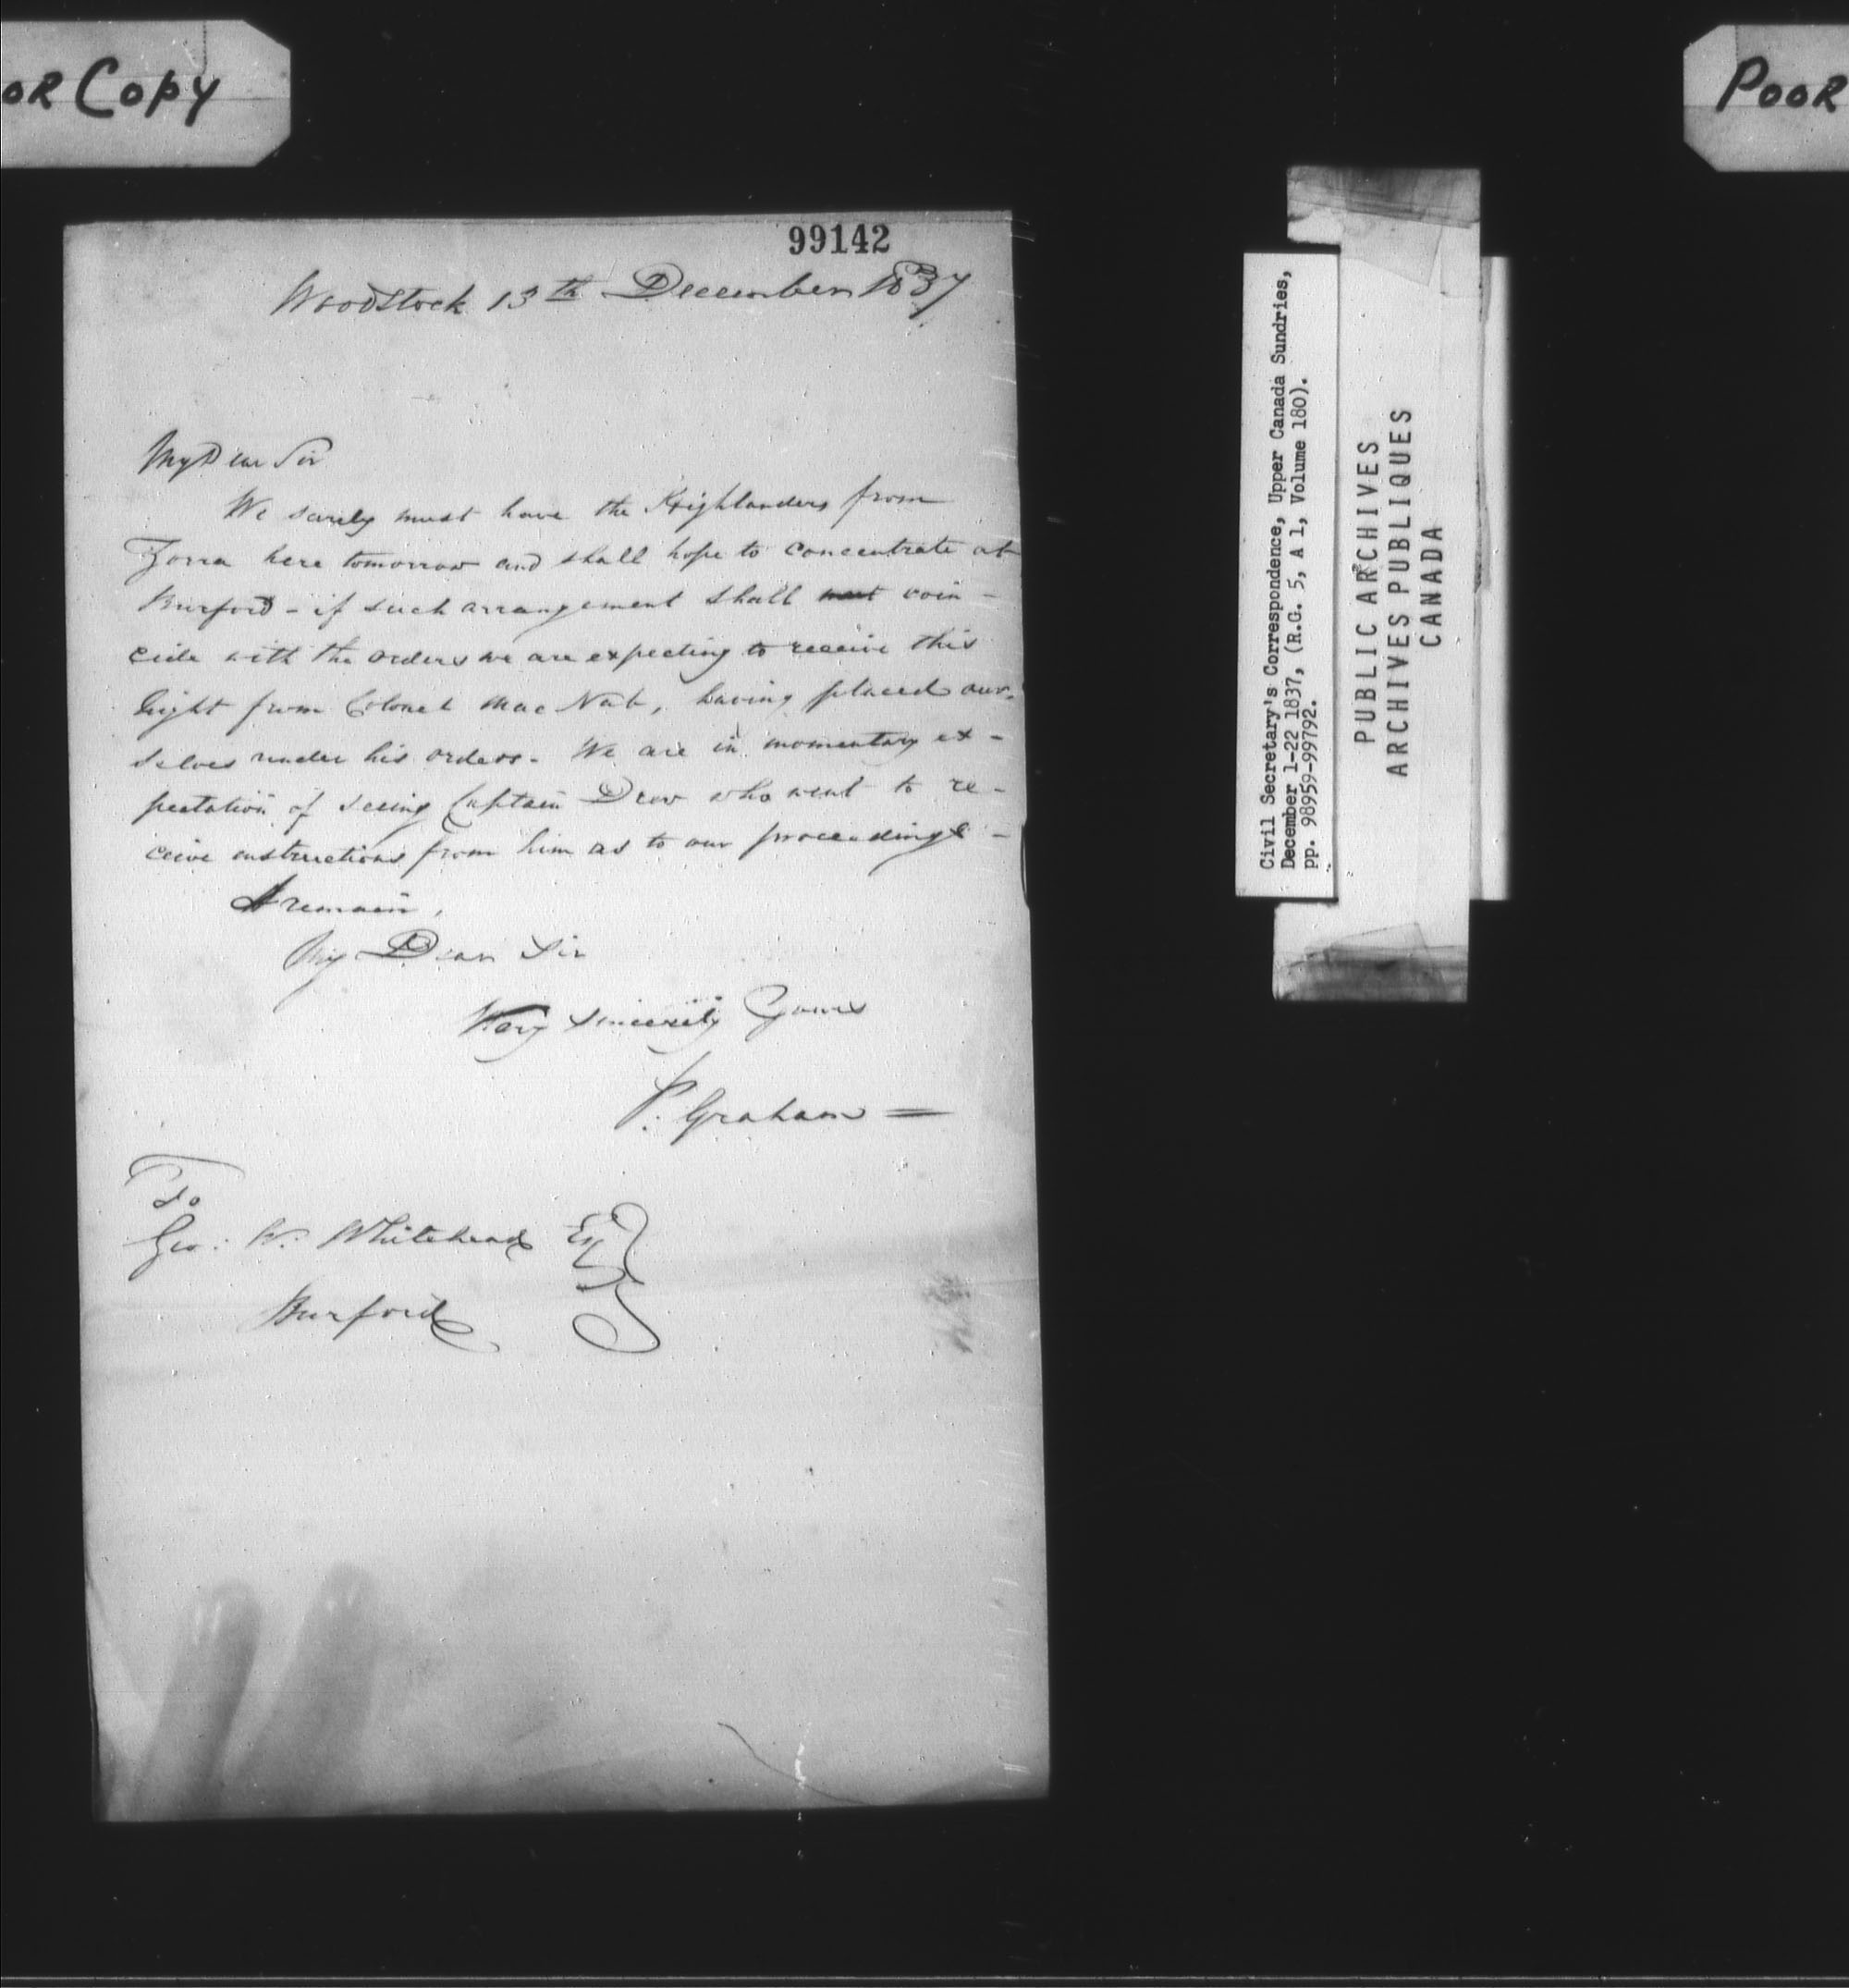 OR Copy
POOR
99142
Woodstock 13th December 1837
My Dear Sir
We surely must have the Highlanders from
Zorra here tomorrow and shall hope to concentrate at
Burford - if such arrangement shall coin -
cide with the orders we are expecting to receive this
night from Colonel Mac Nab, having placed our-
selves under his orders - We are in momentary ex -
pectation of seeing Captain Drew who went to re -
ceive instructions from him as to our proceedings -
I remain,
My Dear Sir
Very Sincerely Yours
P. Graham =
To
Geo: W. Whitehead Esq
Burford
Civil Secretary's Correspondence, Upper Canada Sundries,
December 1-22 1837, (R.G. 5, A 1, Volume 180).
pp. 98959-99792.
PUBLIC ARCHIVES
ARCHIVES PUBLIQUES
CANADA